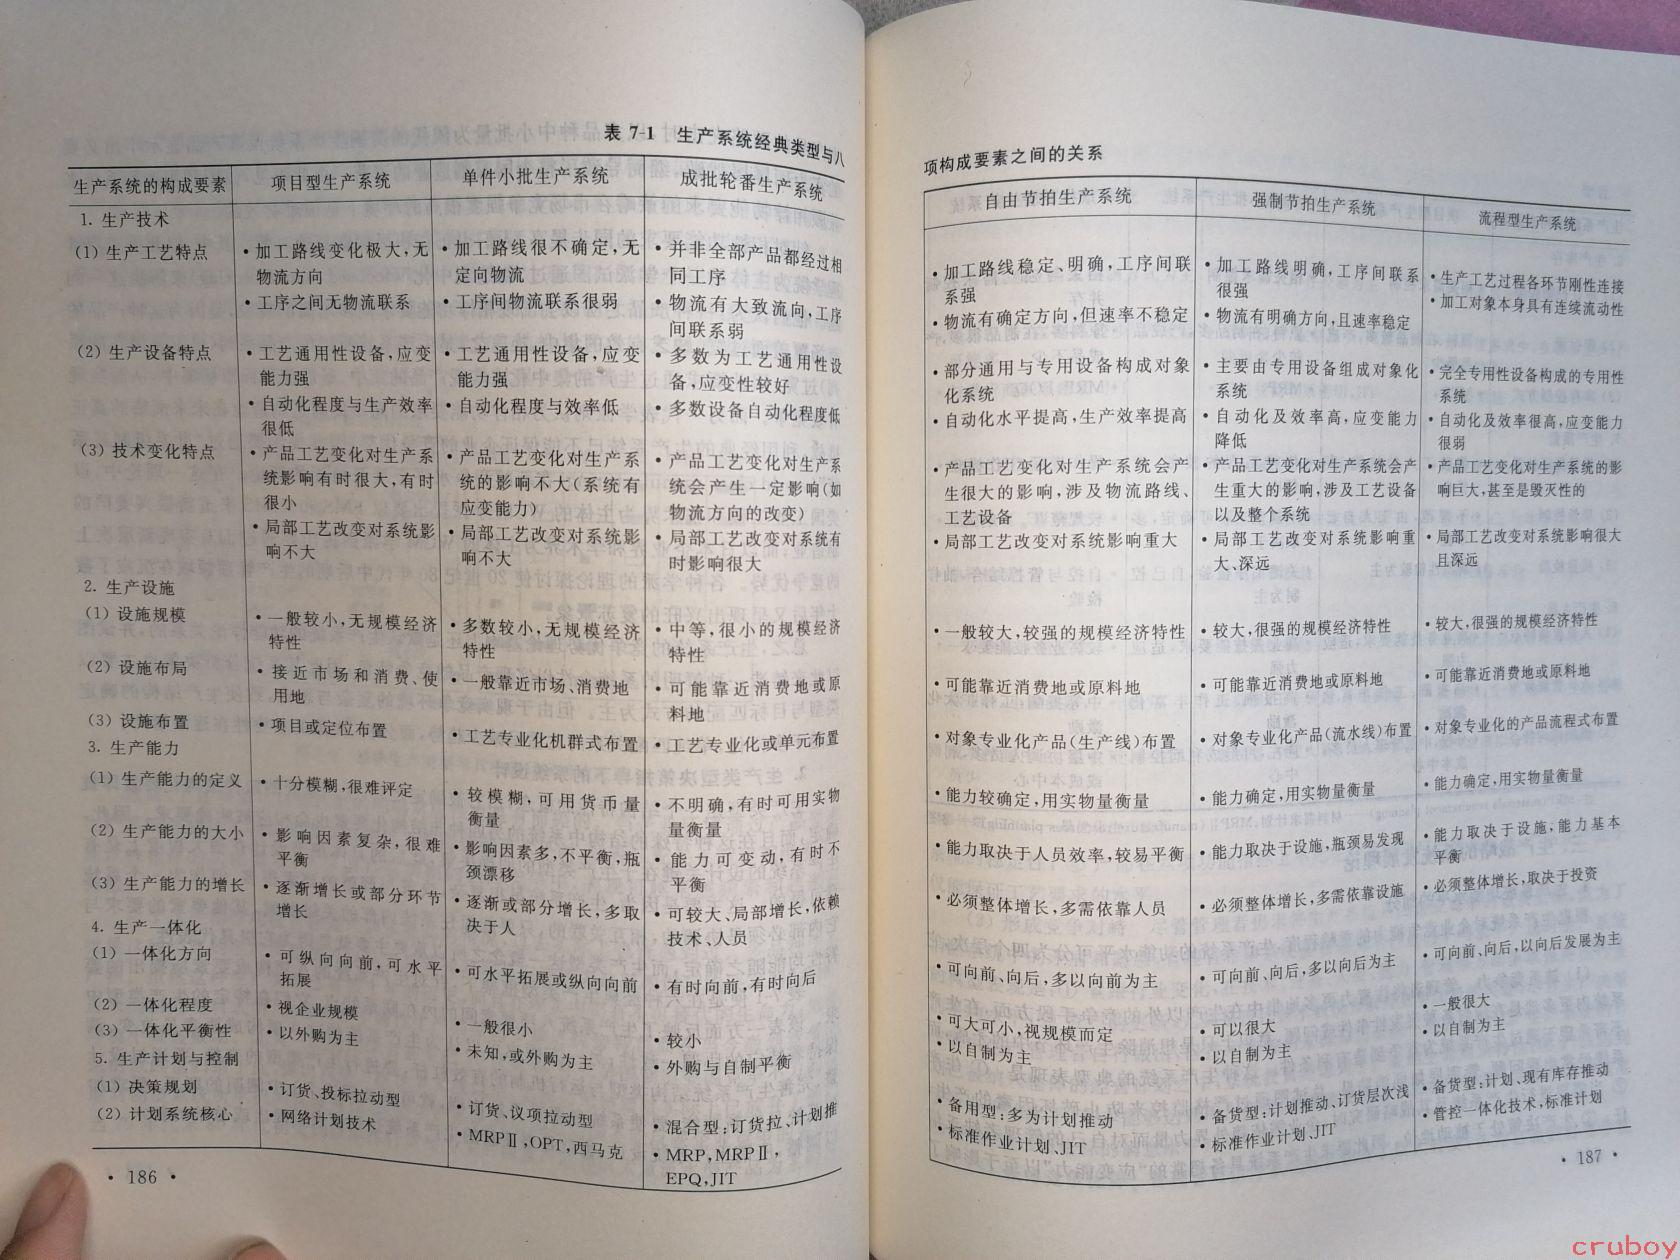 表 7-1 生产系统经典类型与八
生产系统的构成要素 项目型生产系统 单件小批生产系统 成批轮番生产系统
1. 生产技术
(1) 生产工艺特点
(2) 生产设备特点
(3) 技术变化特点
2. 生产设施
(1) 设施规模
(2) 设施布局
(3) 设施布置
3. 生产能力
(1) 生产能力的定义
(2) 生产能力的大小
(3) 生产能力的增长
4. 生产一体化
(1) 一体化方向
(2) 一体化程度
(3) 一体化平衡性
5. 生产计划与控制
(1) 决策规划
(2) 计划系统核心
• 加工路线变化极大,无
物流方向
• 工序之间无物流联系
• 工艺通用性设备,应变
能力强
• 自动化程度与生产效率
很低
• 产品工艺变化对生产系
统影响有时很大,有时
很小
• 局部工艺改变对系统影
响不大
• 一般较小,无规模经济
特性
• 接近市场和消费、使
用地
• 项目或定位布置
• 十分模糊,很难评定
• 影响因素复杂,很难
平衡
• 逐渐增长或部分环节
增长
• 可纵向向前,可水平
拓展
• 视企业规模
• 以外购为主
• 订货、投标拉动型
• 网络计划技术
• 加工路线很不确定,无
定向物流
• 工序间物流联系很弱
• 工艺通用性设备,应变
能力强
• 自动化程度与效率低
• 产品工艺变化对生产系
统的影响不大(系统有
应变能力)
• 局部工艺改变对系统影
响不大
• 多数较小,无规模经济
特性
• 一般靠近市场、消费地
• 工艺专业化机群式布置
• 较模糊,可用货币量
衡量
• 影响因素多,不平衡,瓶
颈漂移
• 逐渐或部分增长,多取
决于人
• 可水平拓展或纵向向前
• 一般很小
• 未知,或外购为主
• 订货、议项拉动型
• MRPⅡ,OPT,西马克
• 并非全部产品都经过相
同工序
• 物流有大致流向,工序
间联系弱
• 多数为工艺通用性设
备,应变性较好
• 多数设备自动化程度低
• 产品工艺变化对生产系
统会产生一定影响(如
物流方向的改变)
• 局部工艺改变对系统有
时影响很大
• 中等,很小的规模经济
特性
• 可能靠近消费地或原
料地
• 工艺专业化或单元布置
• 不明确,有时可用实物
量衡量
• 能力可变动,有时不
平衡
• 可较大、局部增长,依赖
技术、人员
• 有时向前,有时向后
• 较小
• 外购与自制平衡
• 混合型:订货拉、计划推
• MRP,MRPⅡ,
EPQ,JIT
• 186 •
项构成要素之间的关系
自由节拍生产系统 强制节拍生产系统 流程型生产系统
• 加工路线稳定、明确,工序间联
系强
• 物流有确定方向,但速率不稳定
• 部分通用与专用设备构成对象
化系统
• 自动化水平提高,生产效率提高
• 产品工艺变化对生产系统会产
生很大的影响,涉及物流路线、
工艺设备
• 局部工艺改变对系统影响重大
• 一般较大,较强的规模经济特性
• 可能靠近消费地或原料地
• 对象专业化产品(生产线)布置
• 能力较确定,用实物量衡量
• 能力取决于人员效率,较易平衡
• 必须整体增长,多需依靠人员
• 可向前、向后,多以向前为主
• 可大可小,视规模而定
• 以自制为主
• 备用型:多为计划推动
• 标准作业计划、JIT
• 加工路线明确,工序间联系
很强
• 物流有明确方向,且速率稳定
• 主要由专用设备组成对象化
系统
• 自动化及效率高,应变能力
降低
• 产品工艺变化对生产系统会产
生重大的影响,涉及工艺设备
以及整个系统
• 局部工艺改变对系统影响重
大、深远
• 较大,很强的规模经济特性
• 可能靠近消费地或原料地
• 对象专业化产品(流水线)布置
• 能力确定,用实物量衡量
• 能力取决于设施,瓶颈易发现
• 必须整体增长,多需依靠设施
• 可向前、向后,多以向后为主
• 可以很大
• 以自制为主
• 备货型:计划推动、订货层次浅
• 标准作业计划、JIT
• 生产工艺过程各环节刚性连接
• 加工对象本身具有连续流动性
• 完全专用性设备构成的专用性
系统
• 自动化及效率很高,应变能力
很弱
• 产品工艺变化对生产系统的影
响巨大,甚至是毁灭性的
• 局部工艺改变对系统影响很大
且深远
• 较大,很强的规模经济特性
• 可能靠近消费地或原料地
• 对象专业化的产品流程式布置
• 能力确定,用实物量衡量
• 能力取决于设施,能力基本
平衡
• 必须整体增长,取决于投资
• 可向前、向后,以向后发展为主
• 一般很大
• 以自制为主
• 备货型:计划、现有库存推动
• 管控一体化技术,标准计划
• 187 •
cruboy